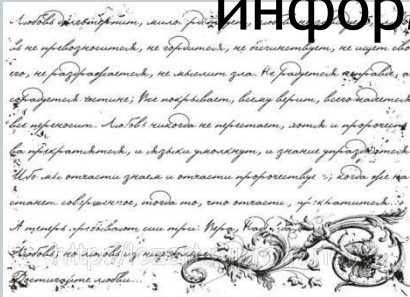 инфор
Любовь долготерпит, мило
ь не превозносится, не гордится, не бесчинствует, не ищет сво
его, не раздражается, не мыслит зла. Не радуется неправде, а
сорадуется истине; Все покрывает, всему верит, всего надеется
все переносит. Любовь никогда не перестает, хотя и пророчес
ва прекратятся, и языки умолкнут, и знание упразднится
Ибо мы отчасти знаем и отчасти пророчествуе ; когда же на
станет совершенное, тогда то, что отчасти, прекратится
А теперь пребывают сии три: Вера, Над да
Любовь; но любовь из них
Достигайте любви...